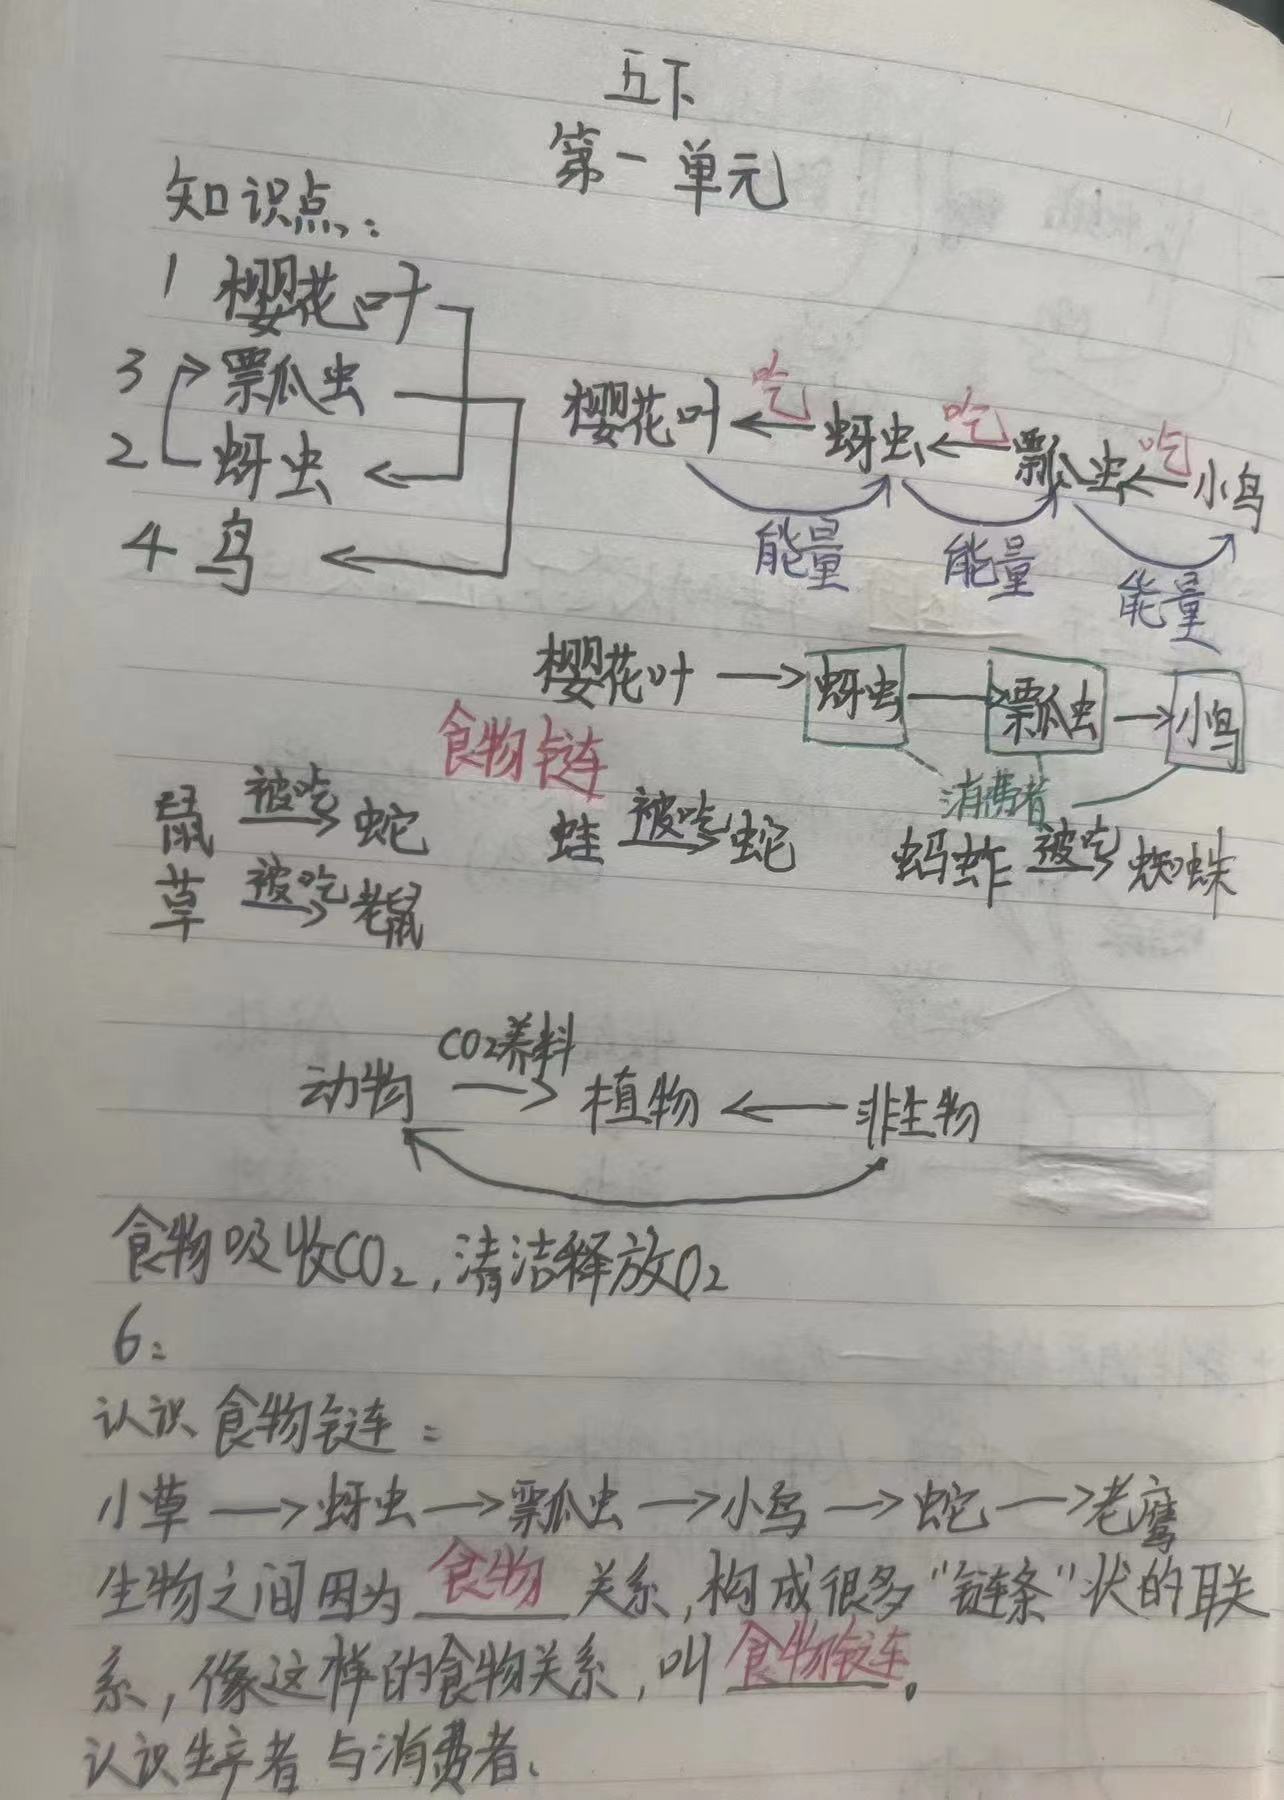 五下
第一单元
知识点:
1 樱花叶
3 瓢瓜虫
2 蚜虫
4 鸟
樱花叶 ← 吃 蚜虫 ← 吃 瓢虫 ← 吃 小鸟
能量 能量 能量
樱花叶 → 蚜虫 → 瓢瓜虫 → 小鸟
食物链
消费者
鼠 被吃→ 蛇 蛙 被吃→ 蛇 蚂蚱 被吃→ 蜘蛛
草 被吃→ 老鼠
CO₂养料
动物 → 植物 ← 非生物
食物吸收CO₂,清洁释放O₂
6:
认识食物链:
小草 → 蚜虫 → 瓢虫 → 小鸟 → 蛇 → 老鹰
生物之间因为 食物 关系,构成很多“链条”状的联
系,像这样的食物关系,叫 食物链。
认识生产者与消费者、